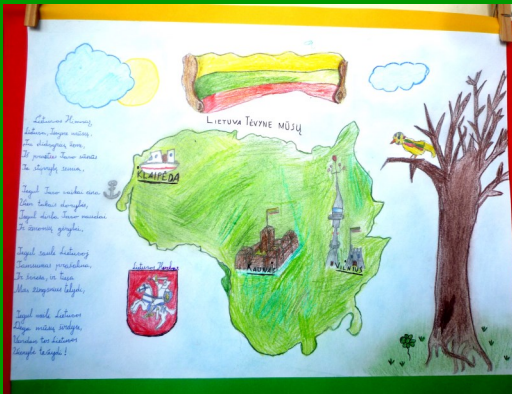 LIETUVA TĖVYNE MŪSŲ
Lietuvos Himnas,
Lietuva, Tėvyne mūsų,
Tu didvyrių žeme,
Iš praeities Tavo sūnūs
Te stiprybę semia,
Tegul Tavo vaikai eina
Vien takais dorybės,
Tegul dirba Tavo naudai
Ir žmonių gėrybei,
Tegul saulė Lietuvoj
Tamsumas prašalina,
Ir šviesa, ir tiesa
Mūs žingsnius telydi,
Tegul meilė Lietuvos
Dega mūsų širdyse,
Vardan tos Lietuvos
Vienybė težydi!
KLAIPĖDA
KAUNAS
VILNIUS
Lietuvos Herbas